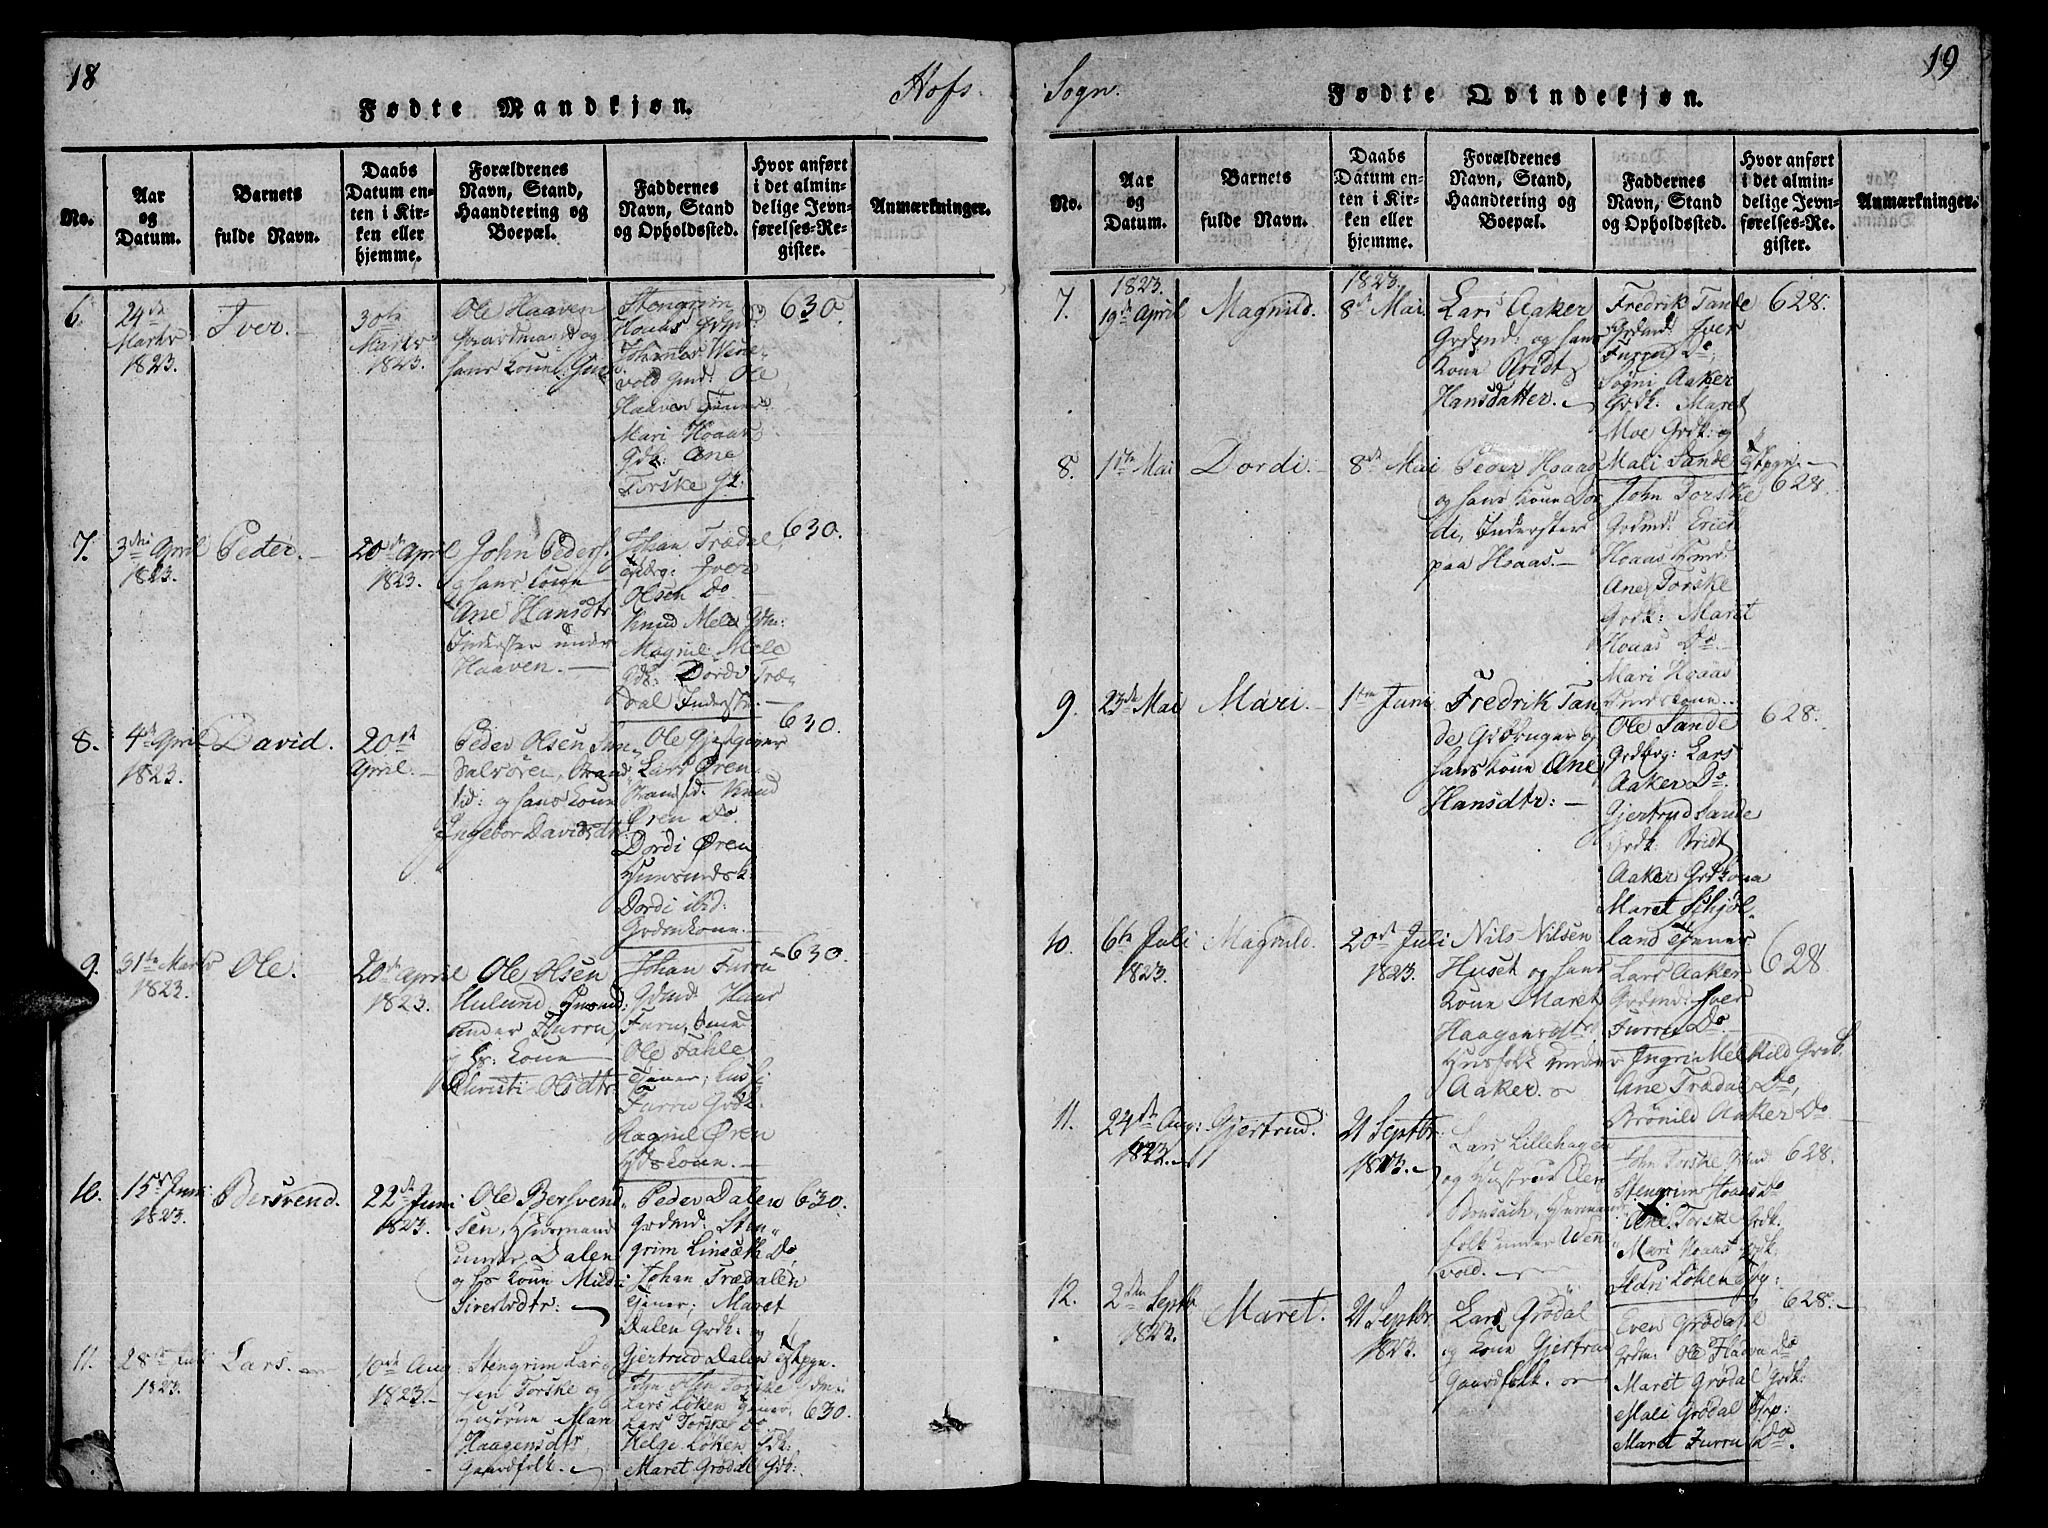 18
Hofs
Fødte Mandkjøn.
No.
Aar
og
Datum.
Barnets
fulde Navn.
Daabs
Datum en-
ten i Kir-
ken eller
hjemme.
Forældrenes
Navn, Stand,
Haandtering og
Boepæl.
Faddernes
Navn, Stand
og Opholdssted.
Hvor anført
i det almin-
delige Jevn-
førelses-Re-
gister.
Anmærkninger.
6.
24de
Marts
1823.
Iver.
30te
Marts
1823.
Ole Haaven
Gaardmand og
hans Kone
Stengrim
Hoaas
Johannes Wine-
vold Gmd: Ole
Haaven Tjener
Mari Hoaas
Gdk: Ane
Torske Gk:
630.
7.
3die April
1823.
Peder.
20de April
1823.
John Peders.
og hans Kone
Ane Hansdtr
Inderster under
Haaven.
Johan Trædal
Iver
Olsen Do
Knud Mele Gdm:
Magnil Mele
Gdk: Dordi Træ-
dal Inderst.
630.
8.
4de April
1823.
David.
20de
April.
Peder Olsen Sun-
dalsøren, Strand
sid: og hans Kone
Ingebor Davidsdtr
Ole Gjestgiver
Lars Øren
Strandsid. Knud
Øren Do
Dordi Øren
Huusmdsk.
Dordi ibid:
Grdmkone.
630.
9.
31te Marts
1823.
Ole.
20de April
1823.
Ole Olsen
Hulund, Huusmd:
under Furru
og Hs: Kone
Christi Olsdtr
Johan Furru
Gdmd: Hans
Furru, Sme
Ole Fahle
Tjener;
Furru Grdk.
Ragnil Øren
Hdskone.
630.
10.
15de Juni
1823.
Bersvend.
22de Juni
1823.
Ole Bersvend-
sen, Huusmand
under Dalen
og Hs Kone Mildri
Siversdtr:
Peder Dalen
Grdmd: Sten-
grim Linsæth Do
Johan Trædalen
Tjener; Maret
Dalen Grdk: og
Gjertrud Dalen Tstpgn.
630.
11.
28de Juli
1823.
Lars.
10de Aug
1823.
Stengrim Lar-
sen Torske og
Hustrue Mari
Haagensdtr
Gaardfolk.
John Olsen Torske Gdm:
Lars Løken Tjener,
Lars Torske Do
Helge Løken Gdk:
Maret Grødal Gdk:
630.
19
Sogn.
Fødte Qvindekjøn.
No.
Aar
og
Datum.
Barnets
fulde Navn.
Daabs
Datum en-
ten i Kir-
ken eller
hjemme.
Forældrenes
Navn, Stand,
Haandtering og
Boepæl.
Faddernes
Navn, Stand
og Opholdssted.
Hvor anført
i det almin-
delige Jevn-
førelses-Re-
gister.
Anmærkninger.
7.
1823.
19de April
Magnild.
1823.
8de Mai
Lars Aaker
Grdmd: og hans
Kone Bridt
Hansdatter.
Fredrik Tande
Grdmd: Iver
Furru Do,
Sogni Aaker
Grdk. Maret
Moe Grdk: og
Mali Sande Tstpgn.
628.
8.
1ste Mai
Dordi.
8de Mai
Peder Hoaas
og hans Kone Dor
di, Inderster
paa Hoaas.
John Torske
Grdmd: Erich
Hoaas Hmd:
Ane Torske
Grdk: Maret
Hoaas Do.
Mari Hoaas
Smedskone.
628.
9.
23de Mai
Mari.
1ste Juni
Fredrik Tan
de Grdbruger og
hans Kone Ane
Hansdtr:
Ole Sande
Grdbrg: Lars
Aaker Do.
Gjertrud Sande
Grdk: Bridt
Aaker Grdkona
Maret Schjøl-
land Tjener
628.
10.
6te Juli
1823.
Magnild.
20de Juli
1823.
Nils Nilsen
Huset og hans
Kone Maret
Haagensdtr
Husfolk under
Aaker.
Lars Aaker
Grdmd: Iver
Furru Do
Ingri Melkild Grdk.
Ane Trædal Do,
Brønild Aaker Do
628
11.
24de Aug:
1823.
Gjertrud.
21 Septbr.
1823.
Lars Lillehagen
og Hustrue Elen
Brusach, Husmand
folk under Wen-
vold.
John Torske Grdmd
Stengrim Hoaas Do
Ane Torske Grdk.
Mari Hoaas Grdk.
Ildri Løken
628.
12.
2den Septb
1823.
Maret.
21 Septbr
1823.
Lars Grødal
og Kone Gjertru
Gaardfolk.
Even Grødal
Grdm: Ole Haavn Do
Maret Grødal Grdk:
Mali Grødal
Maret Furru Do.
628.